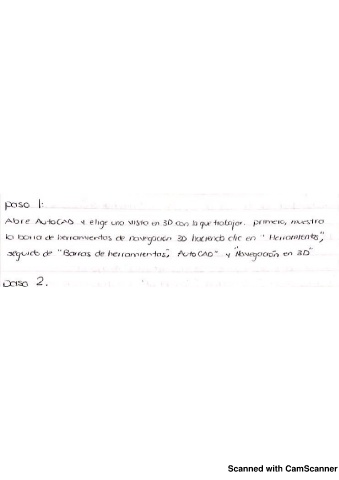 paso 1:
Abre AutoCAD y elige una vista en 3D con la que trabajar. primero, muestra
la barra de herramientas de navegación 3D haciendo clic en "Herramientas",
seguido de "Barras de herramientas", AutoCAD" y "Navegación en 3D"
paso 2.
Scanned with CamScanner